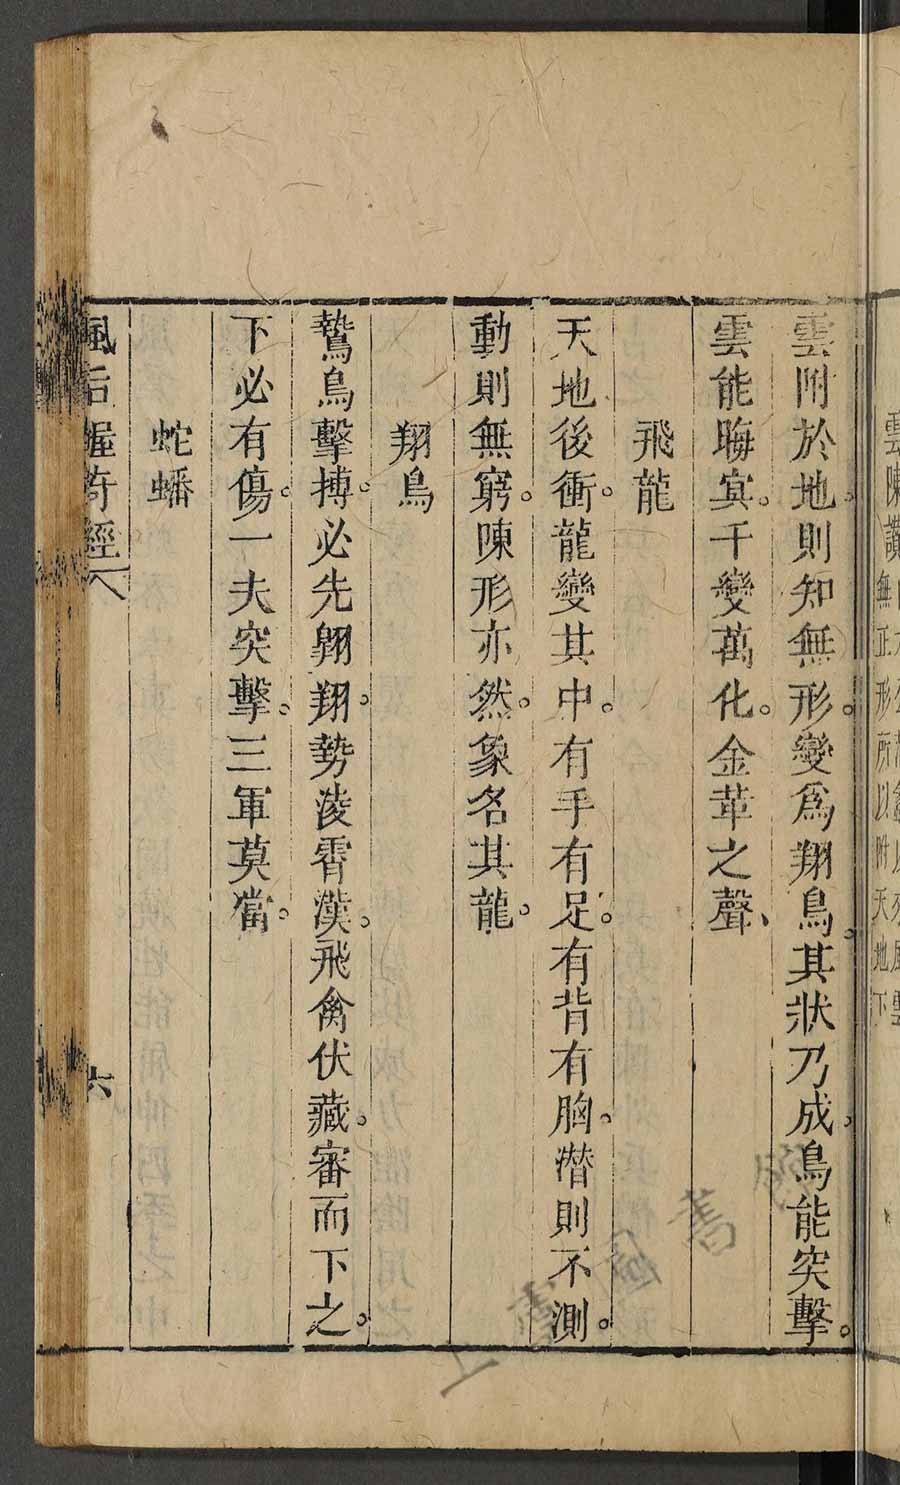 雲附於地。則知無形。變爲翔鳥。其狀乃成。鳥能突擊。
雲能晦㝠。千變萬化。金革之聲、
飛龍
天地後衝。龍變其中。有手有足。有背有胸。潛則不測。
動則無窮。陳形亦然。象名其龍。
翔鳥
鷙鳥擊搏。必先翱翔。勢淩霄漢。飛禽伏藏。審而下之。
下必有傷。一夫突擊。三軍莫當。
蛇蟠
風后握奇經 六
雲陳讚
無正形所以附天地下